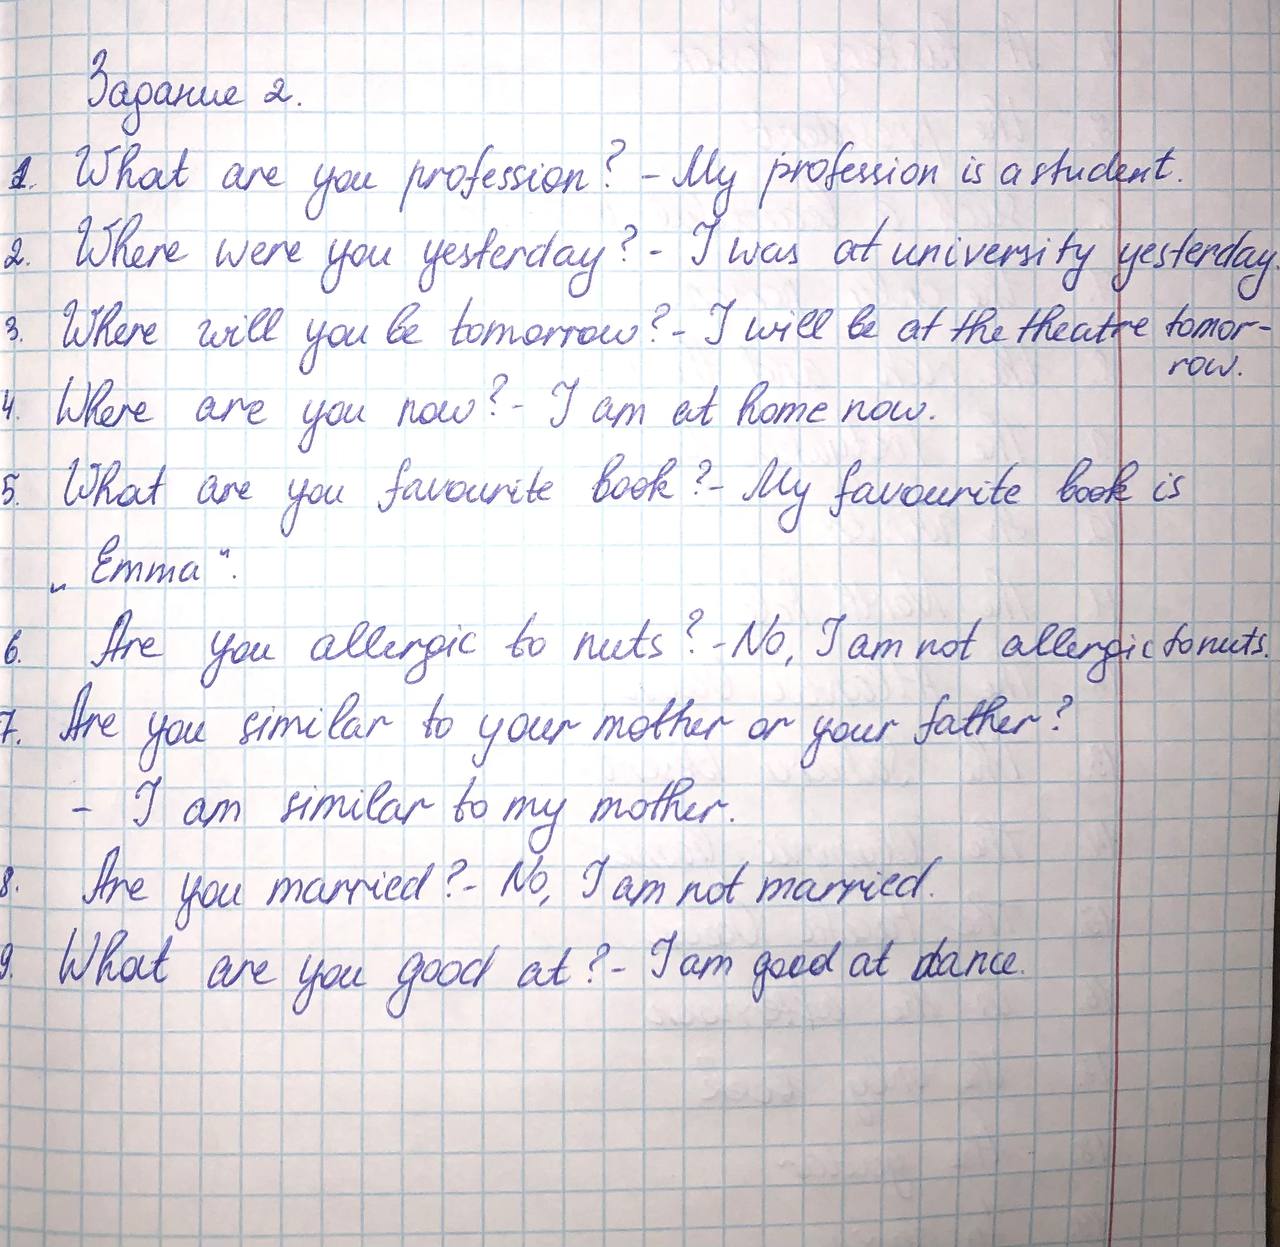 Задание 2.
1. What are you profession? - My profession is a student.
2. Where were you yesterday? - I was at university yesterday.
3. Where will you be tomorrow? - I will be at the theatre tomor-
row.
4. Where are you now? - I am at home now.
5. What are you favourite book? - My favourite book is
„Emma“.
6. Are you allergic to nuts? - No, I am not allergic to nuts.
7. Are you similar to your mother or your father?
- I am similar to my mother.
8. Are you married? - No, I am not married.
9. What are you good at? - I am good at dance.